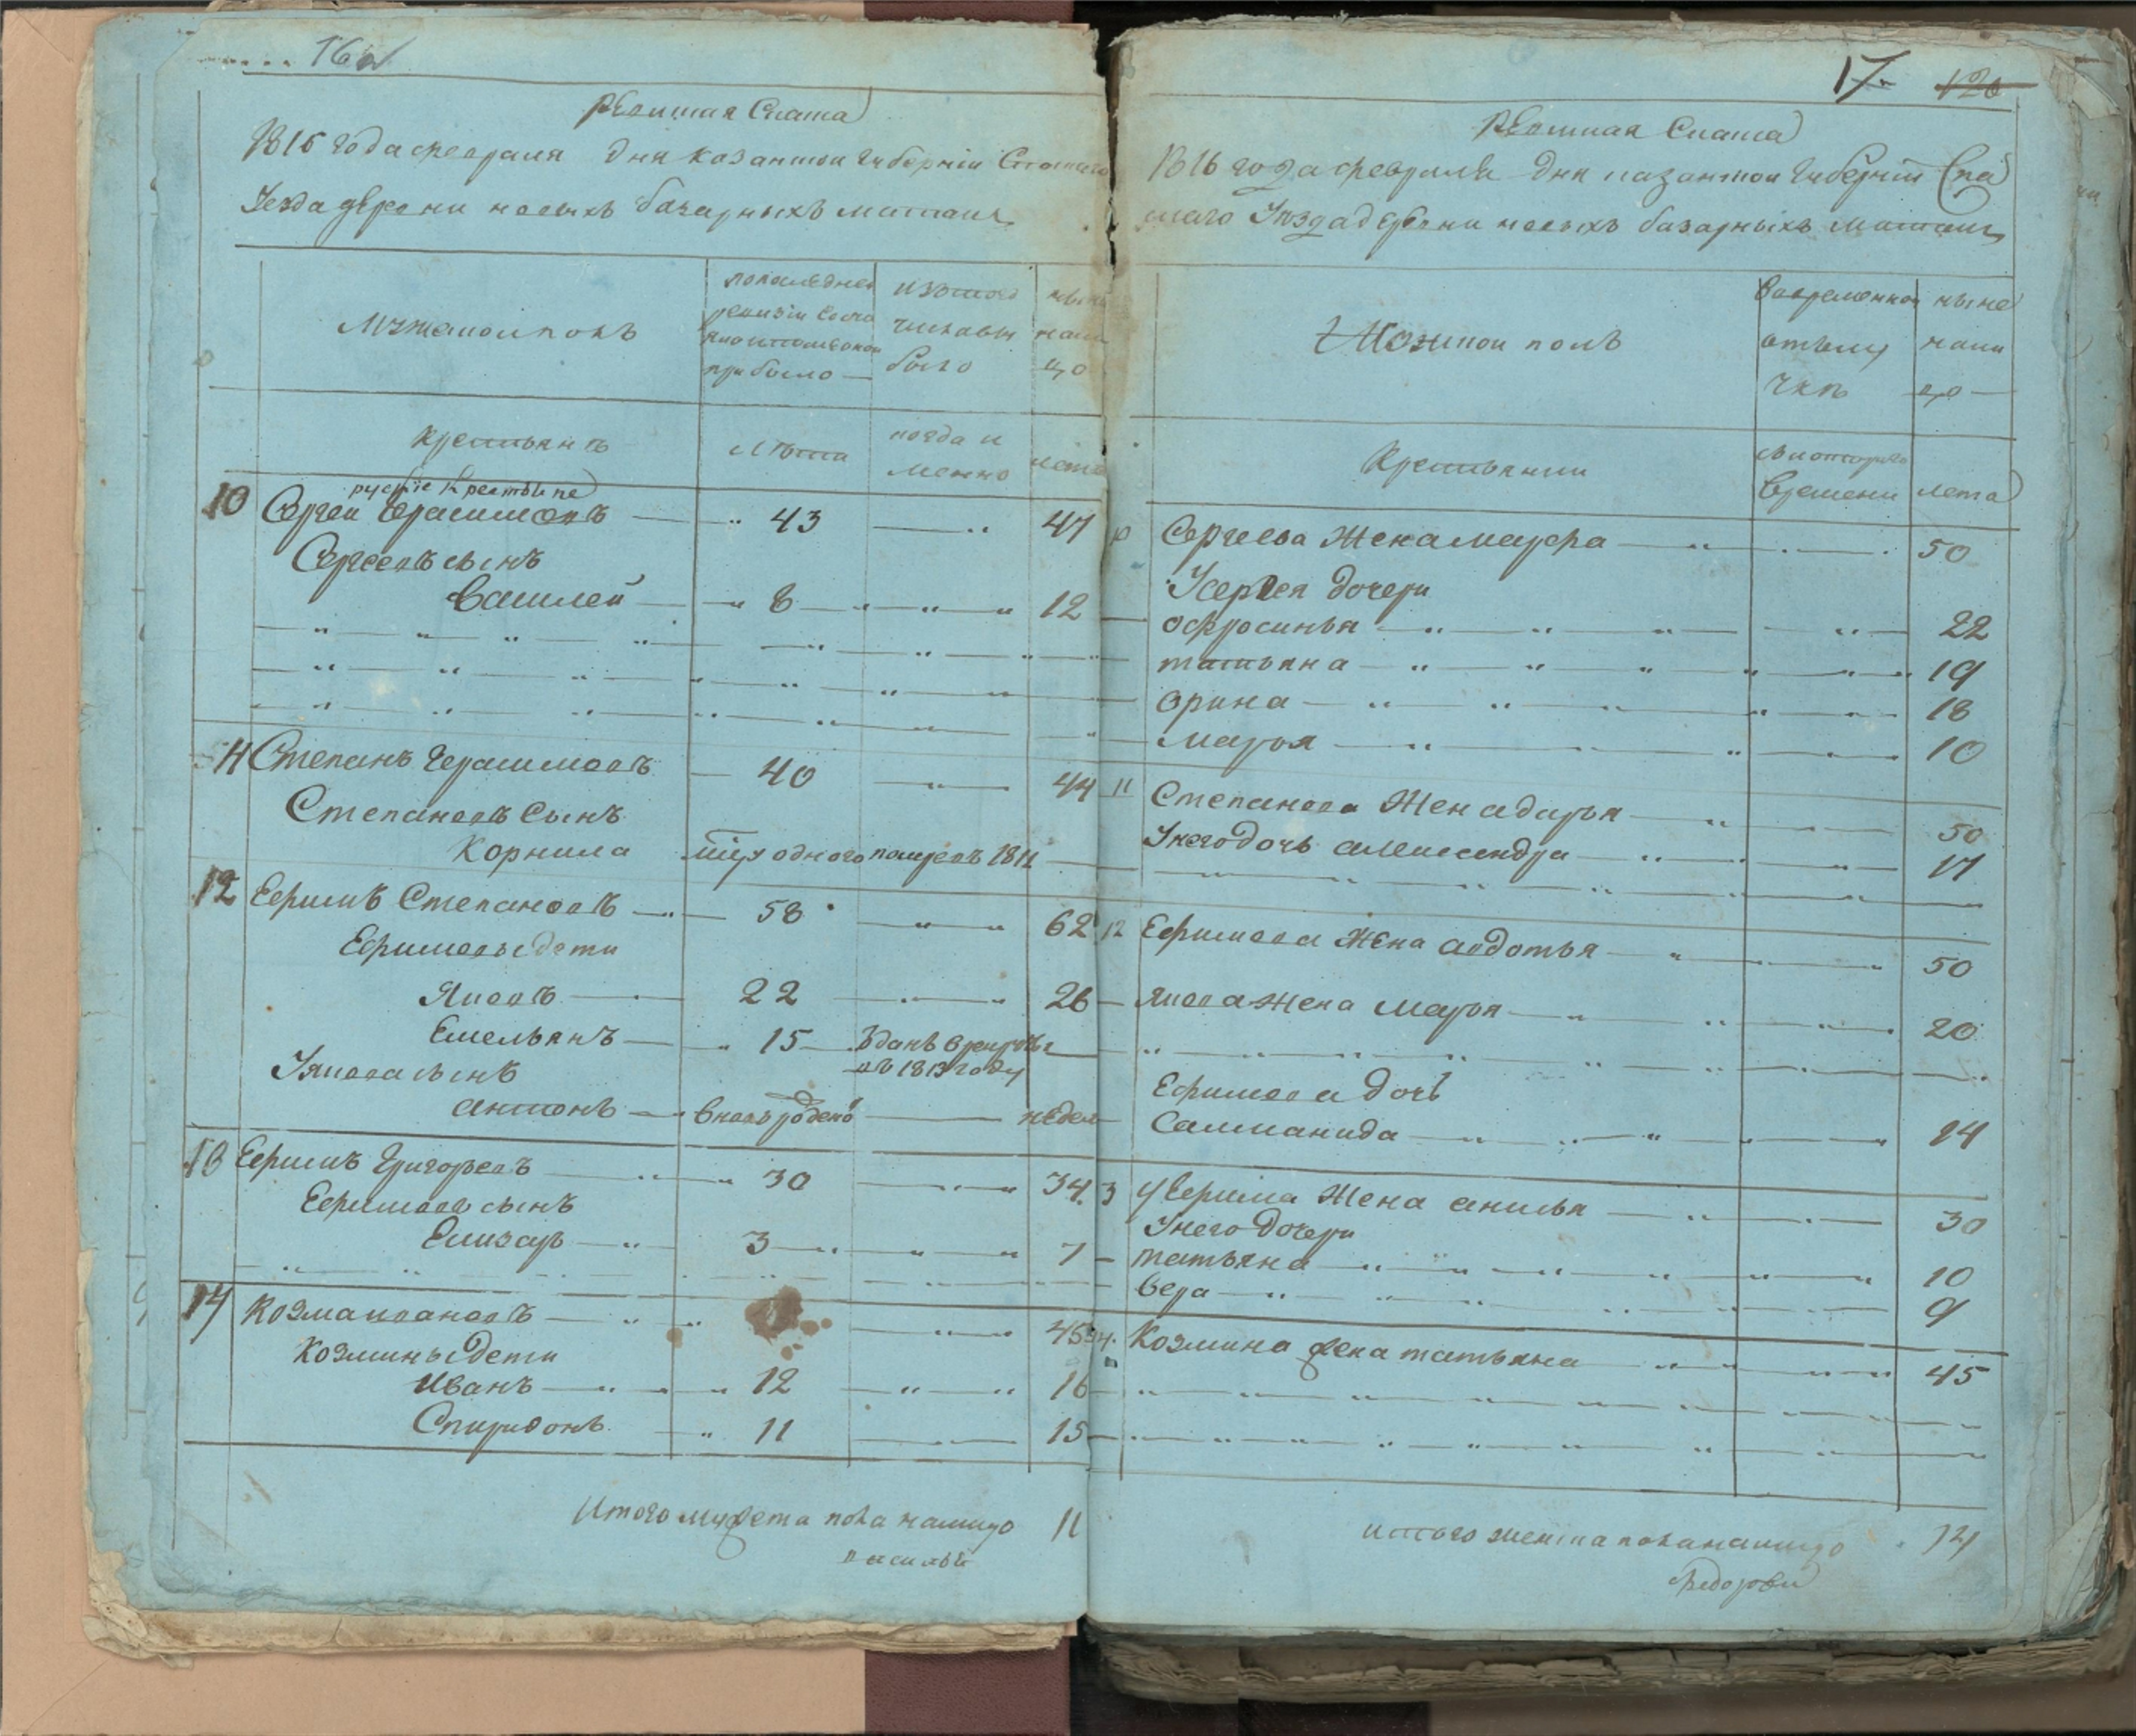 16 об
Ревизкая Скаска
1816 года февраля дня казанской губернии Спаскаго
Уезда деревни новыхъ базарныхъ матакъ
Мужескои полъ
по последней ревизіи состояло и после оной прибыло
изъ того числа выбыло
ныне налицо
крестьянъ
лѣта
когда и менно
лета
руские крестьяне
10 Сергеи Герасимовъ 43 47
Сергеевъ сынъ
Василей 8 12
11 Степанъ Герасимовъ 40 44
Степановъ Сынъ
Корнила помре въ 1811
12 Ефимъ Степановъ 58 62
Ефимовы дети
Яковъ 22 26
Емельянъ 15 Зданъ в рекруты
въ 1813 году
У якова сынъ
антонъ вновь рожденъ недел
13 Ефимъ Григорьевъ 30 34
Ефимовъ сынъ
Елизаръ 3 7
14 Козма ивановъ 45
Козмины дети
Иванъ 12 16
Спиридонъ 11 15
Итого мужеска пола налицо 11
17. 120
Ревизкая Скаска
1816 года февраля дня казанской губернии Спа
скаго Уезда деревни новыхъ базарныхъ матакъ
Женской полъ
Вовременной отлучке
ныне налицо
Крестьянки
съ котораго времени
лета
10 Сергеева Жена мавра 50
У сергея дочери
офросинья 22
татьяна 19
орина 18
марья 10
11 Степанова Жена дарья 50
У него дочь александра 17
12 Ефимова Жена авдотья 50
якова Жена марья 20
Ефимова дочь
Саламанида 14
3 у Ефима Жена анисья 30
У него дочери
татьяна 10
вера 9
14. Козмина жена татьяна 45
итого женска пола налицо 14